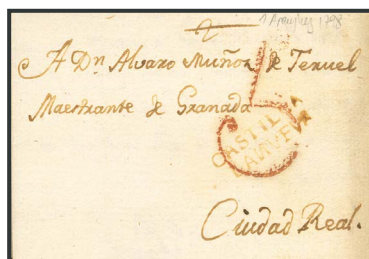 A Dn. Alvaro Muñoz de Teruel
Maestrante de Granada
CASTILLA LA NUEVA
Ciudad Real.